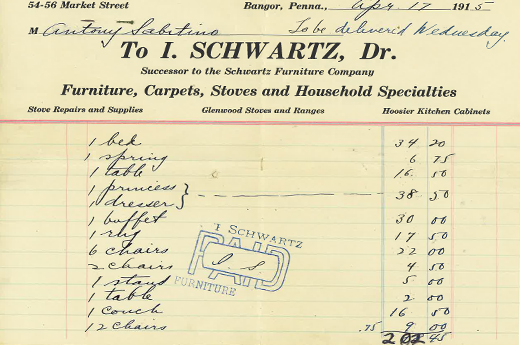 54-56 Market Street Bangor, Penna., Apr 17 1915
M Antony Sabitino To be delivered Wednesday.
To I. SCHWARTZ, Dr.
Successor to the Schwartz Furniture Company
Furniture, Carpets, Stoves and Household Specialties
Stove Repairs and Supplies Glenwood Stoves and Ranges Hoosier Kitchen Cabinets
1 bed 34 20
1 spring 6 75
1 table 16 50
1 princess
1 dresser } 38 50
1 buffet 30 00
1 rug 17 50
6 chairs 22 00
2 chairs 4 50
1 stand 5 00
1 table 2 00
1 couch 16 50
12 chairs .75 9 00
45
I SCHWARTZ
PAID
I. S.
FURNITURE